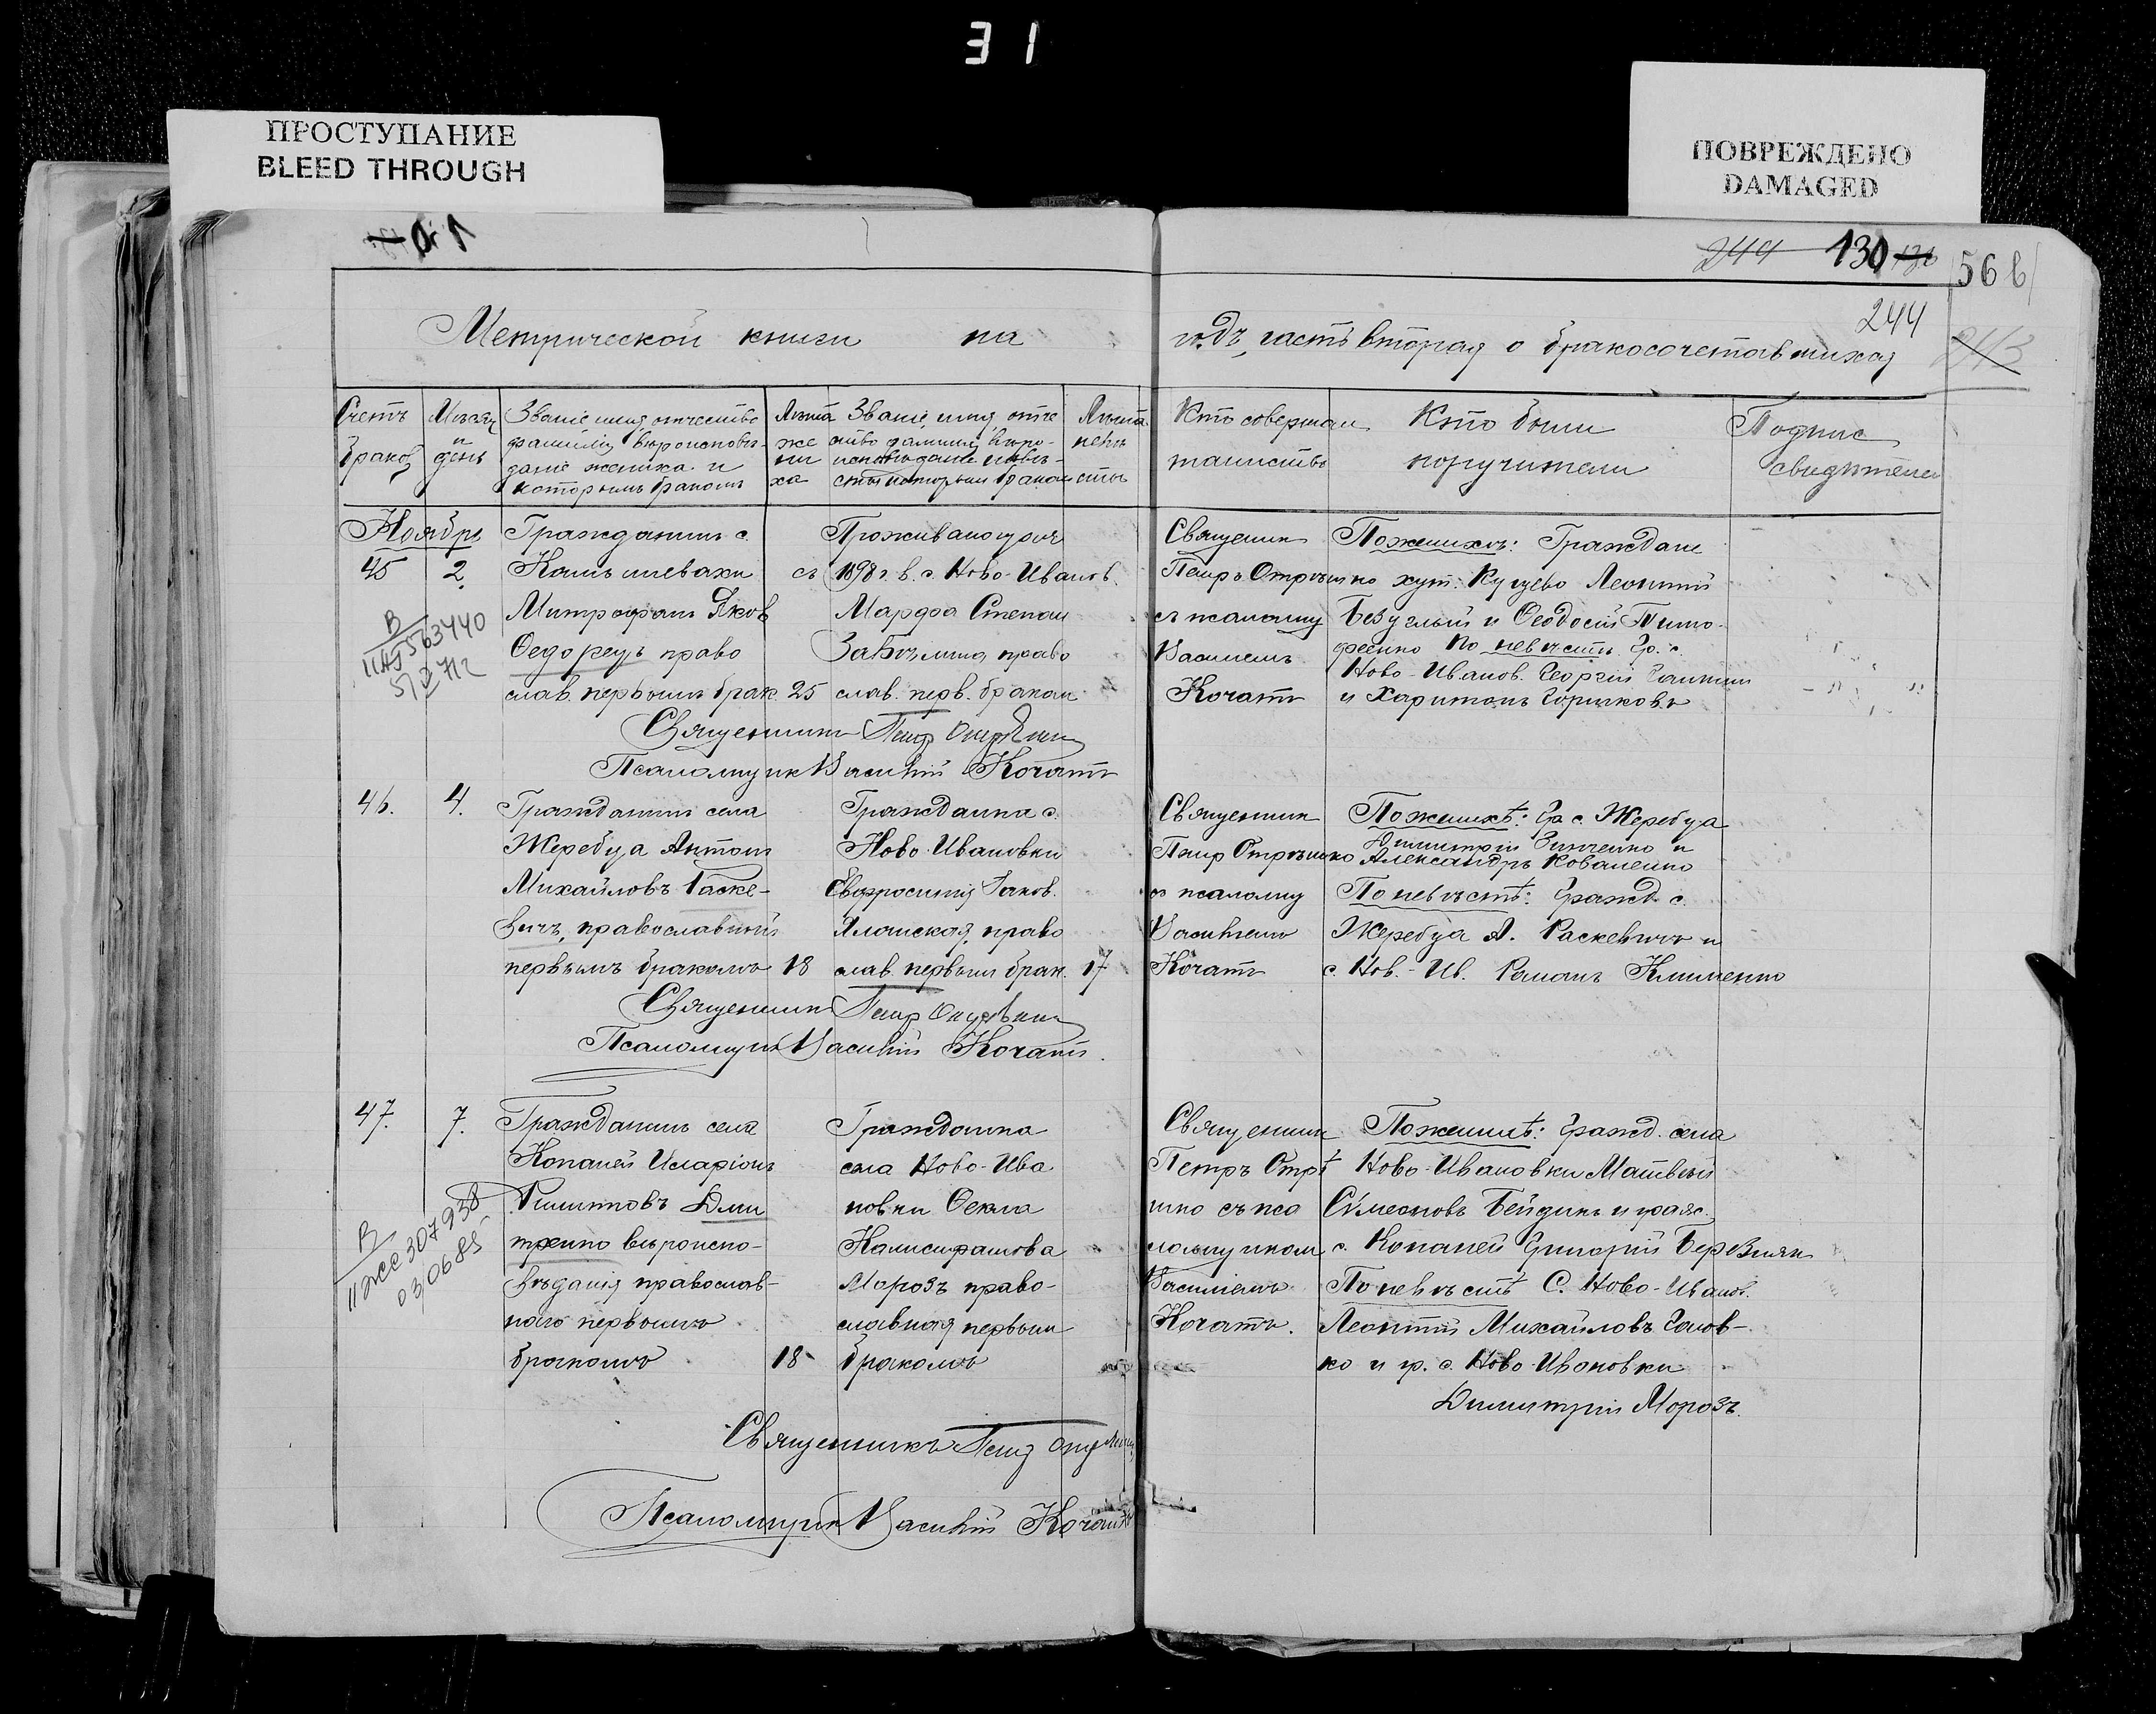 31
ПРОСТУПАНИЕ
BLEED THROUGH
ПОВРЕЖДЕНО
DAMAGED
244 130
56 б
244
Метрической книги на годъ, часть вторая о бракосочетавшихся
Счетъ браковъ
Мѣсяц и день
Званіе, имя, отчество
фамилія, вѣроисповѣ-
даніе жениха и
которымъ бракомъ
Лѣта
же
ни
ха
Званіе, имя, отче
ство фамилия вѣро-
исповѣдание невѣ-
сты которым браком
Лѣта
невѣ
сты
Кто совершал
таинство
Кто были
поручители
Подпис
свидѣтелей
Ноябрь
45
2
Гражданинъ с.
Митрофанъ Яков
Федорець право
слав. первымъ брак. 25
В
5563440
Проживающая
съ 1898 г. в с. Ново-Иванов.
Марфа Степан
право
слав. перв. браком
Священик
Петръ Отрѣшко
съ псаломщ
Василіемъ
Кочатъ
По жениху: Граждане
хут. Кущево Леонтій
Безуглый и Феодосій Тимо-
феенко По невѣстѣ Гр. с.
Ново-Иванов. Георгій
и Харитонъ Горчковъ
Священникъ Петр Отрѣшко
Псаломщик Василій Кочатъ
46.
4.
Гражданинъ села
Жеребца Антон
Михайловъ Раске-
вичъ, православный
первымъ бракомъ 18
Гражданка с.
Ново-Ивановки
Евфросинія Іаков.
право
слав. первым брак. 17
Священник
Петр Отрѣшко
съ псаломщ
Василіемъ
Кочатъ
По женихѣ: Гр с. Жеребца
Димитрій Зинченко и
Александръ Коваленко
По невѣстѣ: Гражд. с.
Жеребца А. Раскевичъ и
с. Нов.-Ив. Романъ Клименко
Священник Петр Отрѣшко
Псаломщик Василій Кочатъ.
47.
7.
Гражданинъ села
Копаней Иларіонъ
Филиповъ Дми
тренко вѣроиспо-
вѣданія православ-
наго первымъ
бракомъ 18
В
307938
030685
Гражданка
села Ново-Ива
новки Фекла
Калистратова
Морозъ право-
славная первым
бракомъ
Священник
Петръ Отрѣ
шко съ пса
ломщиком
Василіемъ
Кочатъ.
По женихѣ: Гражд. села
Ново-Ивановки Матвѣй
Симеоновъ Бейдикъ и граж.
с. Копаней Григорій Березняк
По невѣстѣ С. Ново-Иванов.
Леонтій Михайловъ Голов-
ко и гр. с. Ново-Ивановки
Димитрій Морозъ.
Священникъ Петр Отрѣшко
Псаломщик Василій Кочатъ